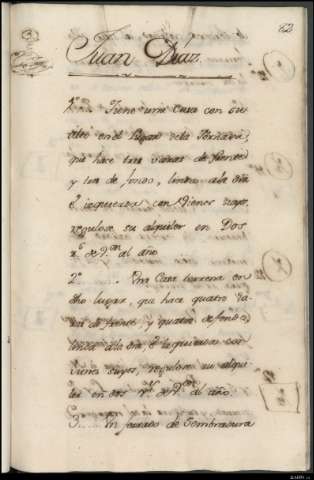 82
Juan Diaz
1º Tiene una Casa con su
en el Lugar de la
que hace tres varas de frente
y tres de fondo, linda a la dra
é izquierda con Vienes suyos,
regulose su alquiler en Dos
rs de Von al año
2º Una Casa terrera en
dho lugar, que hace quatro va
ras de frente, y quatro de fondo,
linda a la dra é izquierda con
vienes suyos, regulose su alqui
ler en dos rs de Von al año
3 Un pedazo de Sembradura